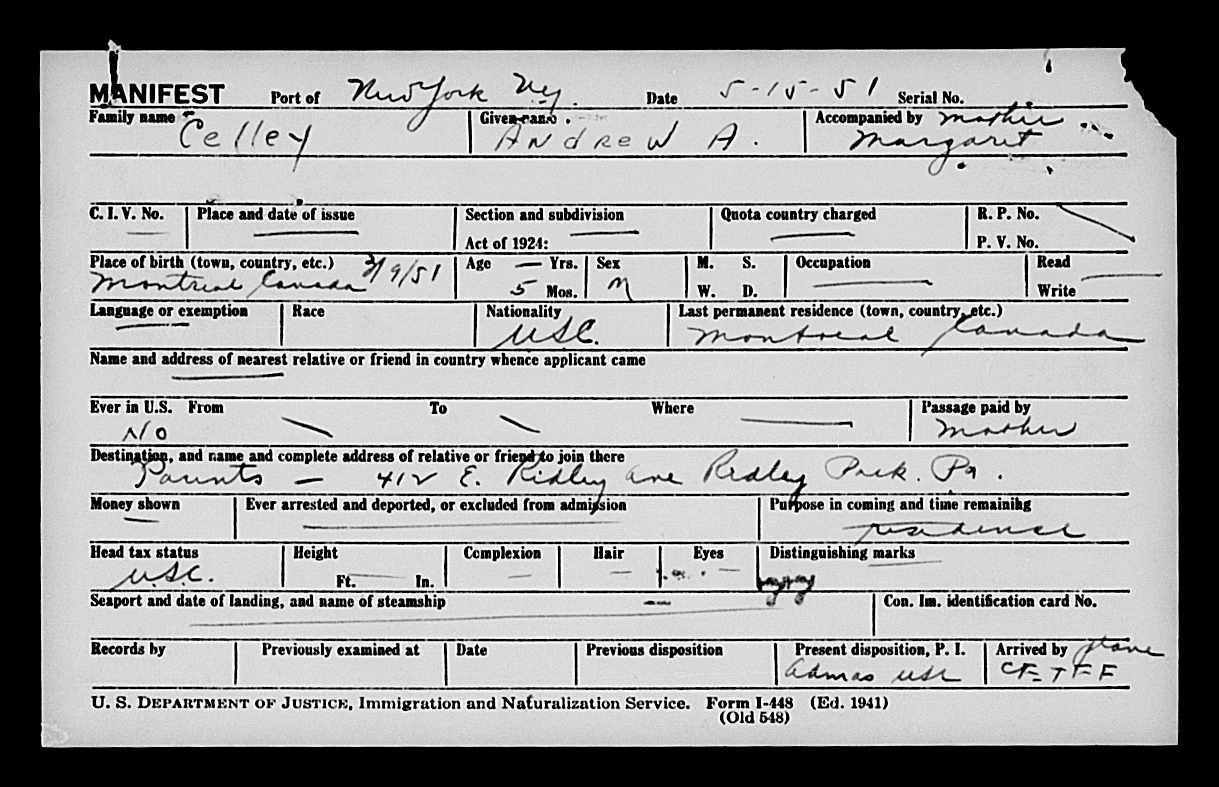 MANIFEST Port of New York Ny. Date 5-15-51 Serial No.
Family name Celley Given name Andrew A. Accompanied by mother Margaret
C. I. V. No. — Place and date of issue — Section and subdivision — Act of 1924: Quota country charged — R. P. No. P. V. No.
Place of birth (town, country, etc.) Montreal Canada 9/51 Age — Yrs. 5 Mos. Sex M M. S. W. D. Occupation — Read — Write
Language or exemption — Race Nationality USC. Last permanent residence (town, country, etc.) Montreal Canada
Name and address of nearest relative or friend in country whence applicant came —
Ever in U.S. No From — To — Where — Passage paid by Mother
Destination, and name and complete address of relative or friend to join there
Parents — 412 E. Ridley ave Ridley Park. Pa.
Money shown — Ever arrested and deported, or excluded from admission — Purpose in coming and time remaining residence
Head tax status U.S.C. Height Ft. — In. Complexion — Hair — Eyes — Distinguishing marks —
Seaport and date of landing, and name of steamship — Con. Im. identification card No.
Records by Previously examined at Date Previous disposition Present disposition, P. I. Admas USC Arrived by plane CF-TFF
U. S. DEPARTMENT OF JUSTICE, Immigration and Naturalization Service. Form I-448 (Ed. 1941)
(Old 548)